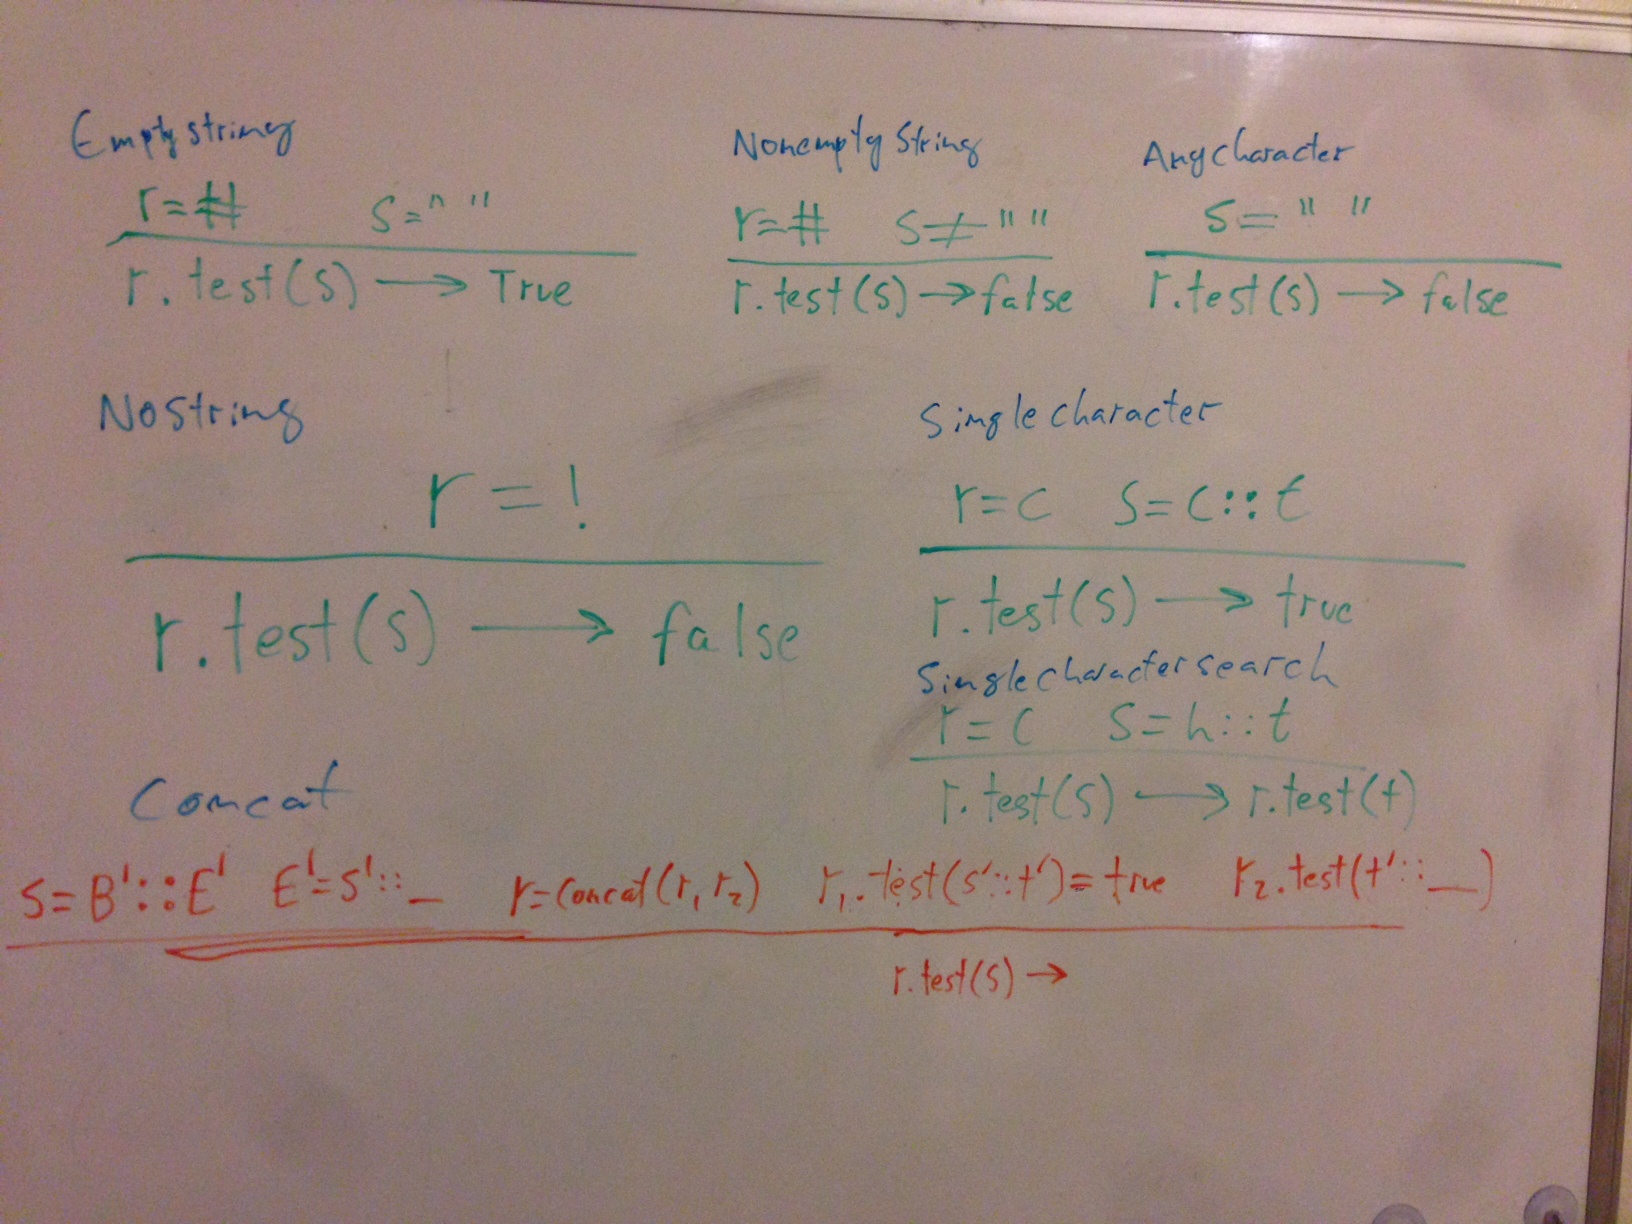 Emptystring
r=# s=" "
r.test(s) → True
Nonempty String
r=# s≠""
r.test(s) → false
Anycharacter
s=" "
r.test(s) → false
NoString
r=!
r.test(s) → false
Singlecharacter
r=c s=c::t
r.test(s) → true
Singlecharactersearch
r=c s=h::t
r.test(s) → r.test(t)
Concat
s=B'::E' E'=s'::_ r=concat(r₁ r₂) r₁.test(s'::t')=true r₂.test(t'::_)
r.test(s) →